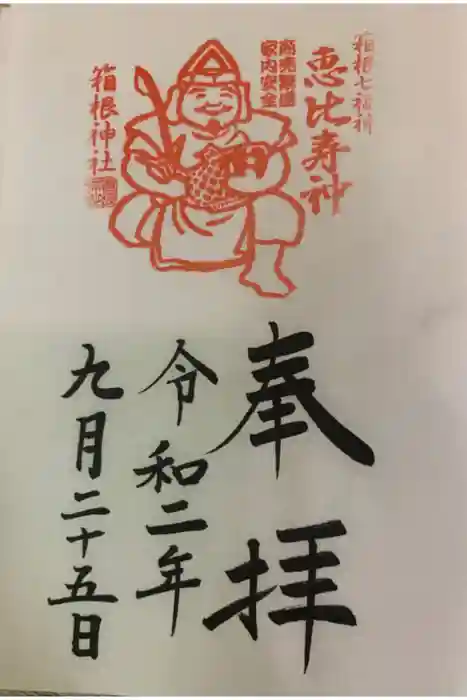 箱根七福神
恵比寿神
商売繁盛
家内安全
箱根神社
奉拝
令和二年
九月二十五日